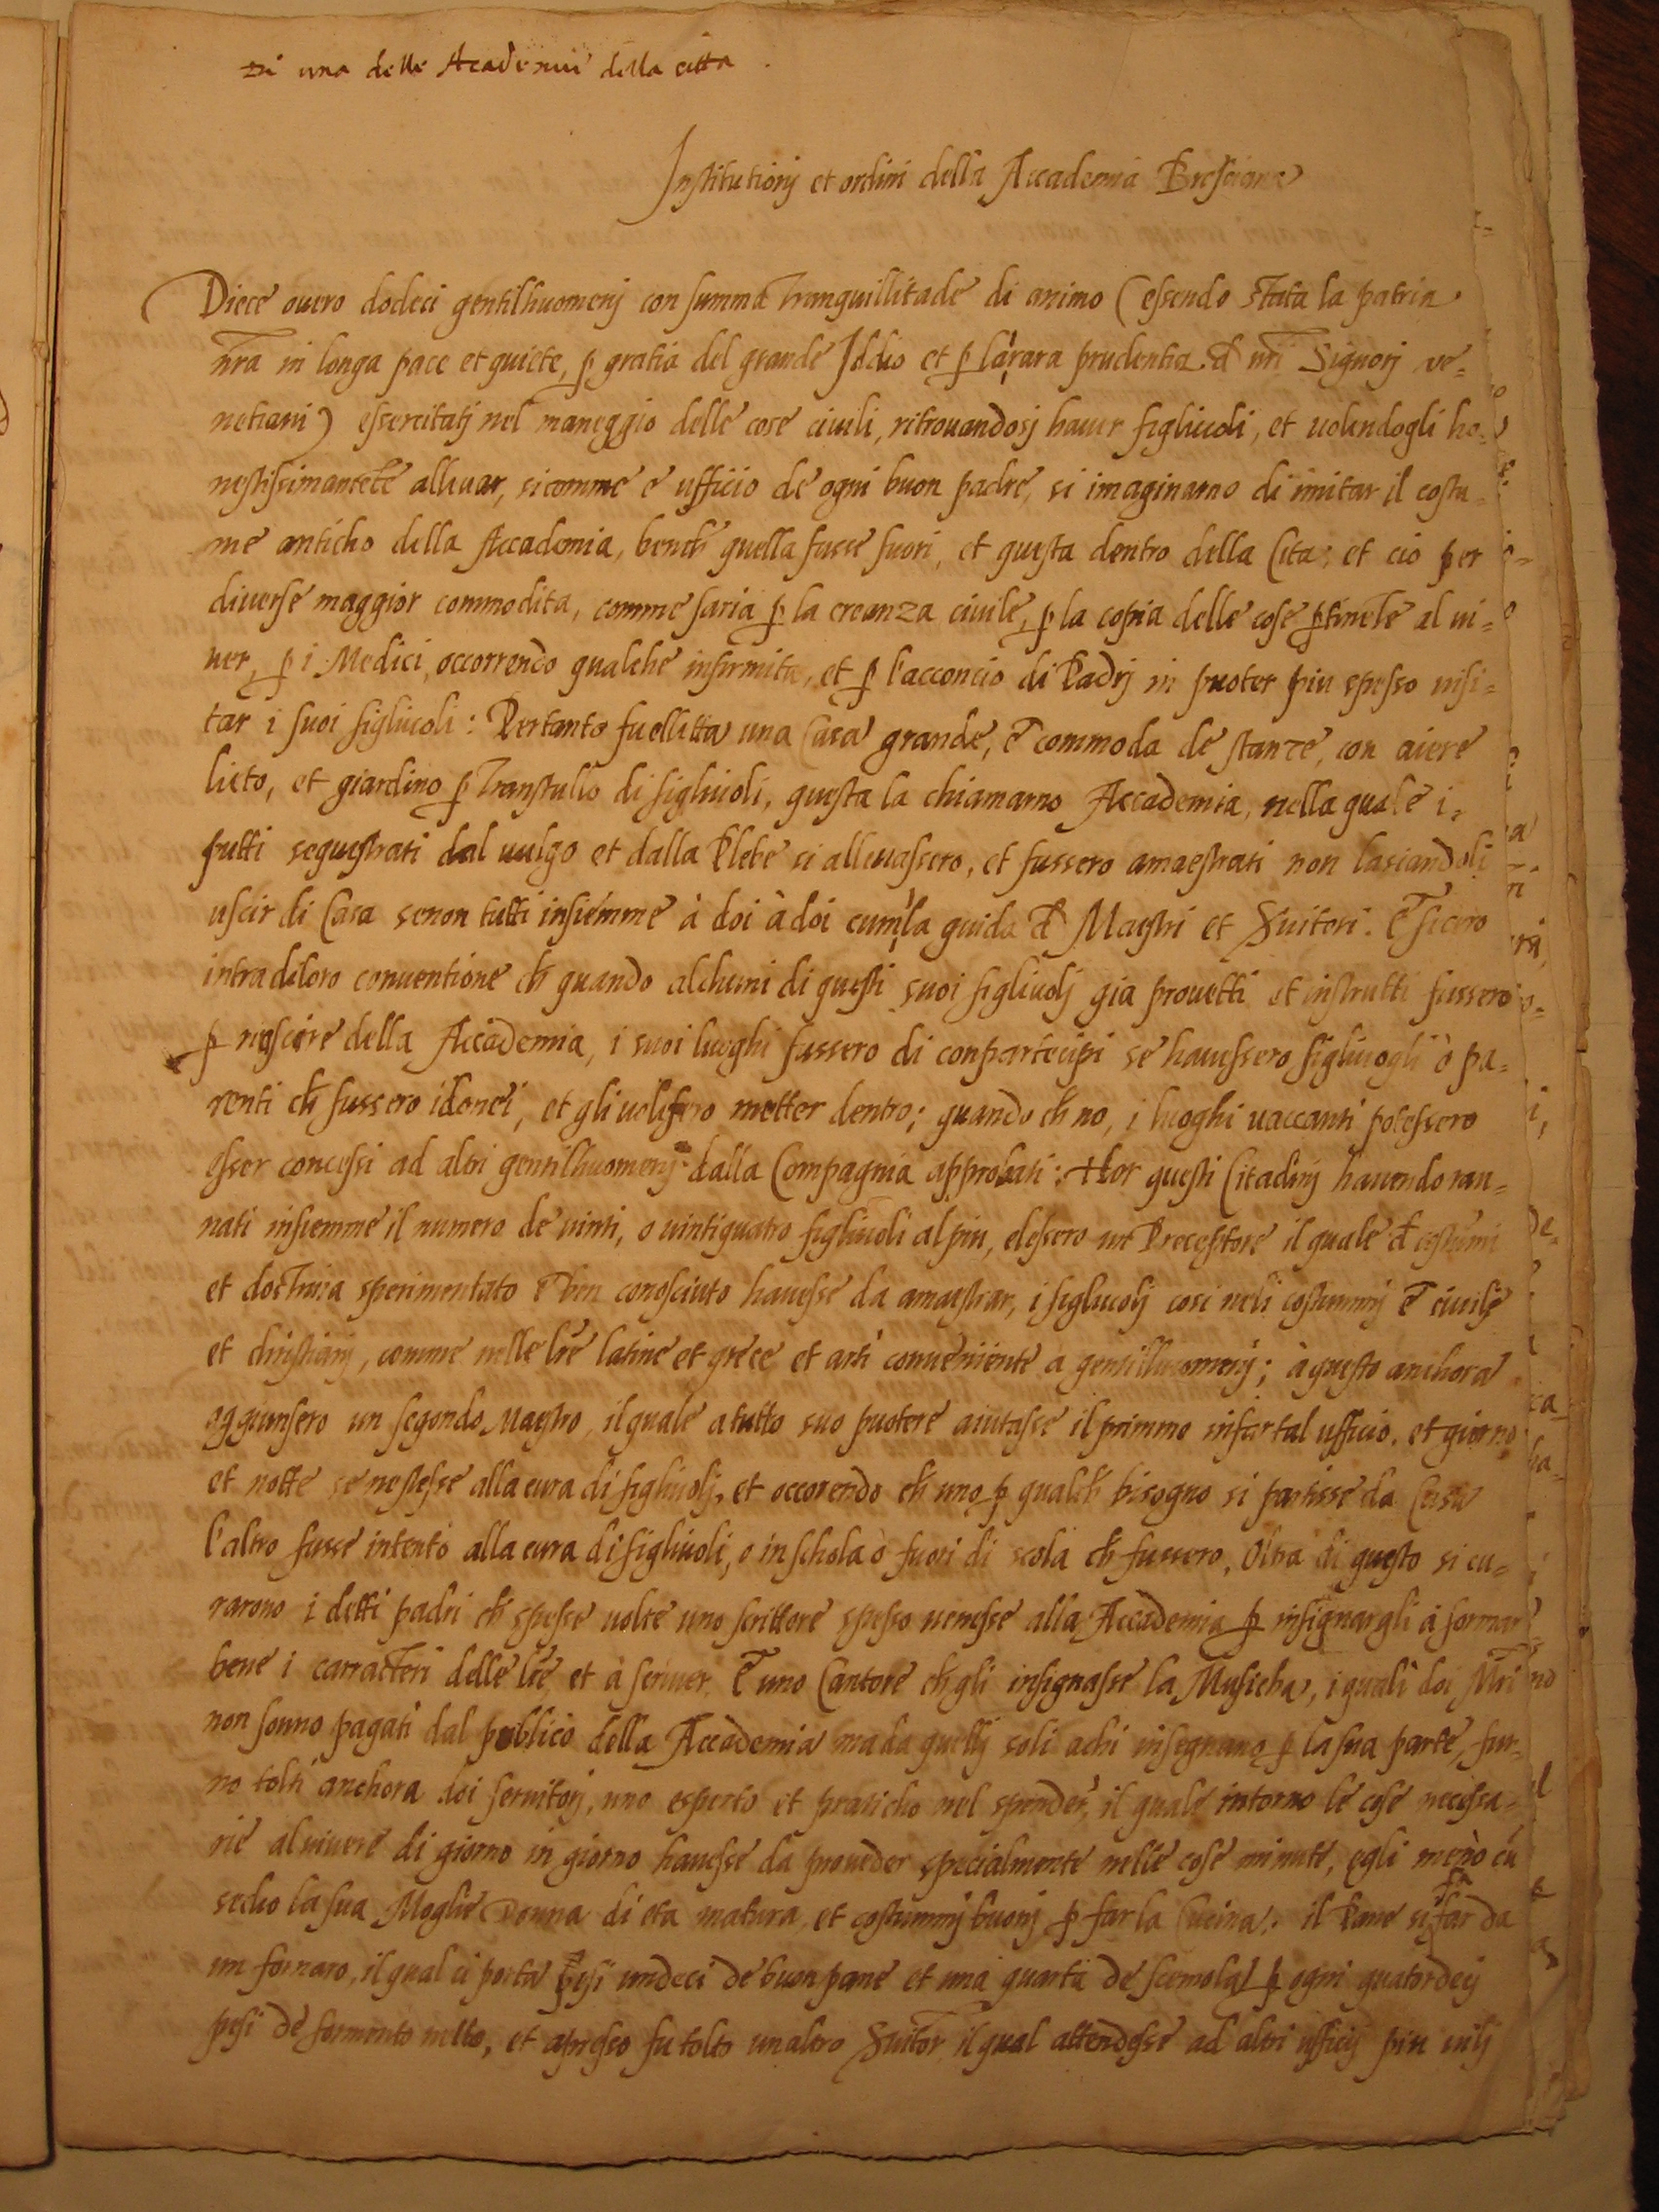 Di una delle Academie della citta.
Institutionj et ordini della Accademia Bresciana
Diece ouero dodeci gentilhuomenj con summa Tranquillitade di animo (essendo stata la patria
nrã in longa pace et quiete, p gratia del grande Iddio et p la rara prudentia d nri Signorj ve=
netiani) essercitatj nel maneggio delle cose ciuili, ritrouandosj hauer figliuoli, et uolendogli ho=
alleuar, sicomme e ufficio de ogni buon padre, si imaginarno di imitar il costu=
me anticho della Accademia, bench quella fusse fuori, et questa dentro della Cita; et cio per
diuerse maggior commodita, comme saria p la creanza ciuile, p la copia delle cose al ui=
uer, p i Medici, occorrendo qualche infirmita, et p l'acconcio di Padrj in puoter piu spesso uisi=
tar i suoi figliuoli: Pertanto fu elletta una Casa grande, e commoda de stanze, con aiere
lieto, et giardino p Transtullo di figliuoli, questa la chiamarno Accademia, nella quale i=
putti sequestrati dal uulgo et dalla Plebe si alleuassero, et fussero amaestrati non lasiandoli
uscir di Casa senon tutti insiemme à doi à doi cum la guida d Maestri et Suitori. E ficero
intra di loro conuentione ch quando alchuni di questi suoi figliuolj gia prouetti et instrutti fussero
p uscire della Accademia, i suoi luoghi fussero di conpartecipi se hauessero figliuogli ò pa=
renti ch fussero idonei, et gli uolessero metter dentro; quando ch no, i luoghi uaccanti potessero
esser concessi ad altri gentilhuomenj dalla Compagnia approbati: Hor questi Citadinj hauendo rau=
nati insiemme il numero de uinti, o uintiquatro figliuoli al piu, elessero un Precettore il quale d costumi
et doctrina sperimentato e ben conosciuto hauesse da amaestrar, i figliuolj cosi neli costummj e ciuile
et christianj, comme nelle lre latine et grece et arti conueniente a gentilhuomenj; à questo anchora
aggiunsero un segondo Maestro, il quale a tutto suo puotere aiutasse il primmo in far tal ufficio. et giorno
et notte se stesse alla cura di figliuolj, et occorendo ch uno p qualch bisogno si partisse da Casa
l'altro fusse intento alla cura di figliuoli, o in schola ò fuori di scola ch fussero. Oltra di questo si cu=
rarono i detti padri ch spesse uolte uno scrittore spesso uenesse alla Accademia p insignargli à formar
bene i carratteri delle lre et à scriuer, E uno Cantore ch gli insignasse la Musicha, i quali doi Mri
non sonno pagati dal publico della Accademia ma da quellj soli achi insegnano p la sua parte, fur=
no tolti anchora doi seruitorj, uno esperto et praticho nel spender, il quale intorno le cose necessa=
rie al uiuere di giorno in giorno hauesse da proueder specialmente nelle cose minute, egli menò cu
secho la sua Moglie Donna di eta matura, et costummj buonj p far la Cucina. il Pane si fa far da
un fornaro, il qual ci porta pesi undeci de buon pane et una quarta de scemola p ogni quatordecj
pesi de formento netto, et apresso fu tolto un altro Suitor il qual attendesse ad altri ufficij piu uilj